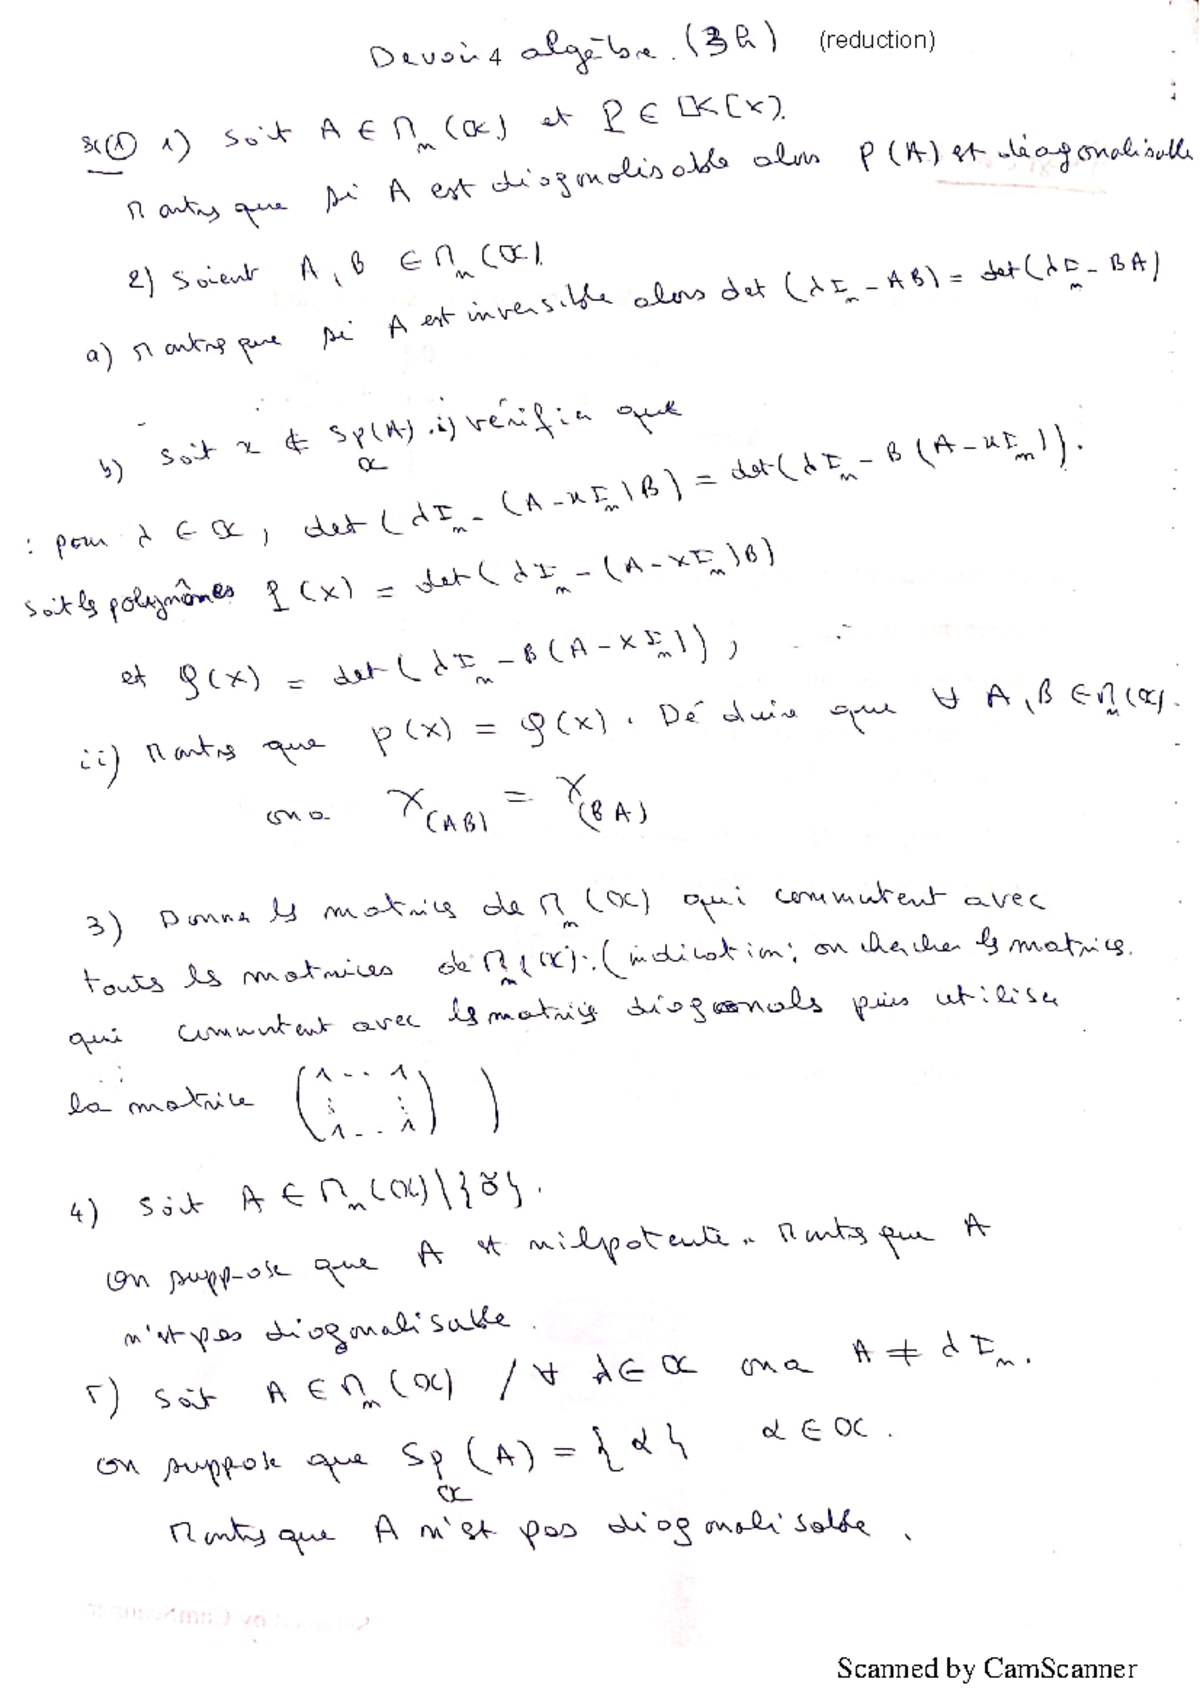 Devoir 4 algèbre. (3h) (reduction)
Ex(1) 1) Soit A ∈ M_n(ℂ) et P ∈ K[X].
Montrer que si A est diagonalisable alors P(A) est diagonalisable
2) Soient A, B ∈ M_n(ℂ)
a) Montrer que si A est inversible alors det(λI_n - AB) = det(λI_n - BA)
b) soit x ∉ Sp_ℂ(A). i) vérifier que
: pour λ ∈ ℂ, det(λI_n - (A - xI_n)B) = det(λI_n - B(A - xI_n)).
soit les polynômes P(x) = det(λI_n - (A - xI_n)B)
et φ(x) = det(λI_n - B(A - xI_n)),
ii) Montrer que p(x) = φ(x). Déduire que ∀ A, B ∈ M_n(ℂ).
on a χ_(AB) = χ_(BA)
3) Donner les matrices de M_n(ℂ) qui commutent avec
touts les matrices de M_n(ℂ). (indication; on chercher les matrices.
qui commutent avec les matrices diagonals puis utiliser
la matrice (1 -- 1 ⋮ ⋮ 1 -- 1) )
4) Soit A ∈ M_n(ℂ)\{0}.
On suppose que A est nilpotente. Montrer que A
n'est pas diagonalisable.
5) Soit A ∈ M_n(ℂ) / ∀ λ ∈ ℂ on a A ≠ λI_n.
on suppose que Sp_ℂ(A) = {α} α ∈ ℂ.
Montrer que A n'est pas diagonalisable.
Scanned by CamScanner